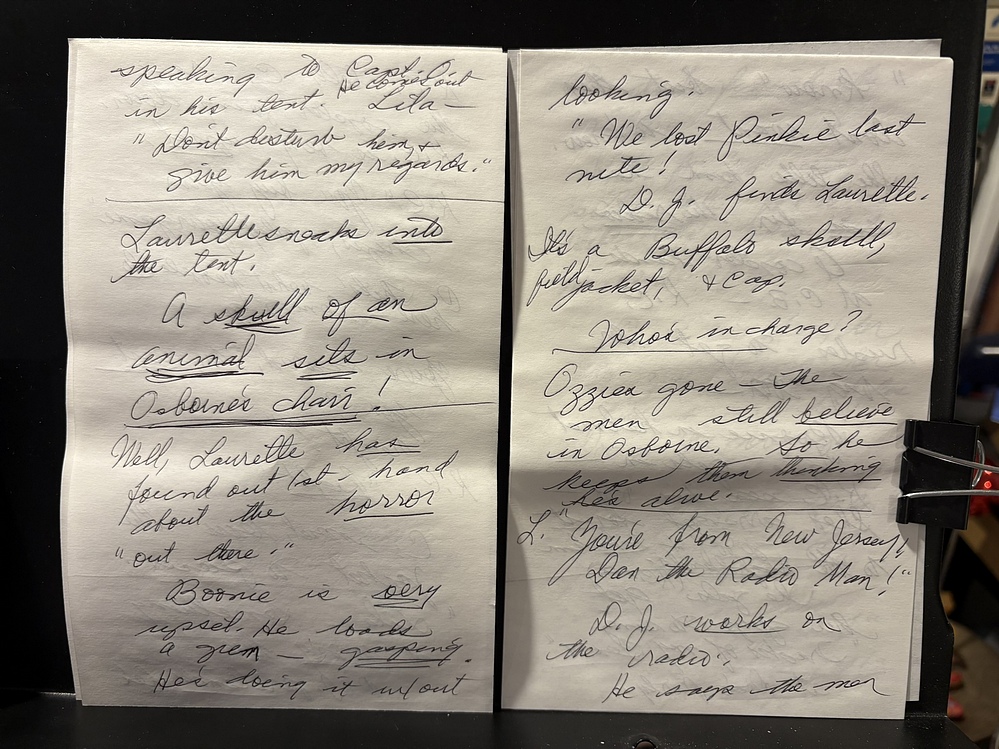 speaking to Capt. O
He comes out
in his tent. Lila —
"Don't disturb him, &
give him my regards."
Laurette sneaks into
the tent.
A skull of an
animal sits in
Osborne's chair!
Well, Laurette has
found out 1st. hand
about the horror
"out there."
Boonie is very
upset. He loads
a gun — gasping.
He's doing it w/out
looking.
"We lost Pinkie last
nite!
D. J. finds Laurette.
It's a Buffalo skull,
field jacket, & cap.
Who's in charge?
Ozzie's gone — The
men still believe
in Osborne. So he
keeps them thinking
he's alive.
L. "You're from New Jersey,
Dan the Radio Man!"
D. J. works on
the radio.
He says the men